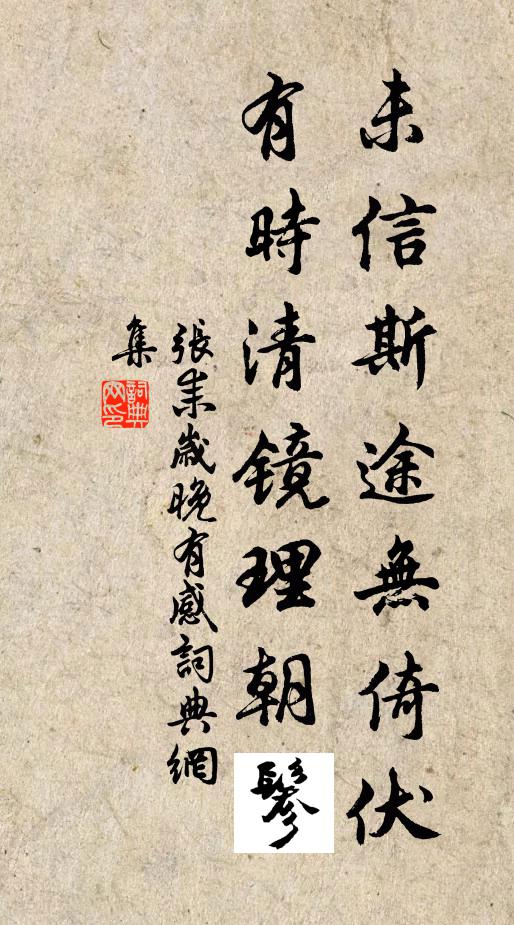 未信斯途無倚伏
有時清镜理朝鬖
張耒歲晚有感詞典網
集
詞典
网印